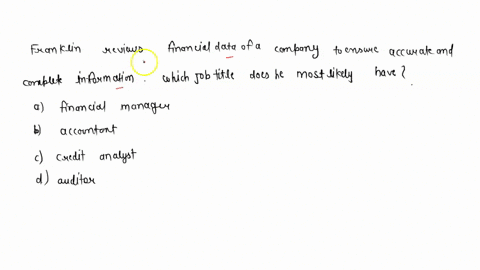 Franklin reviews financial data of a company to ensure accurate and
complete information. which job title does he most likely have?
a) financial manager
b) accountant
c) credit analyst
d) auditor